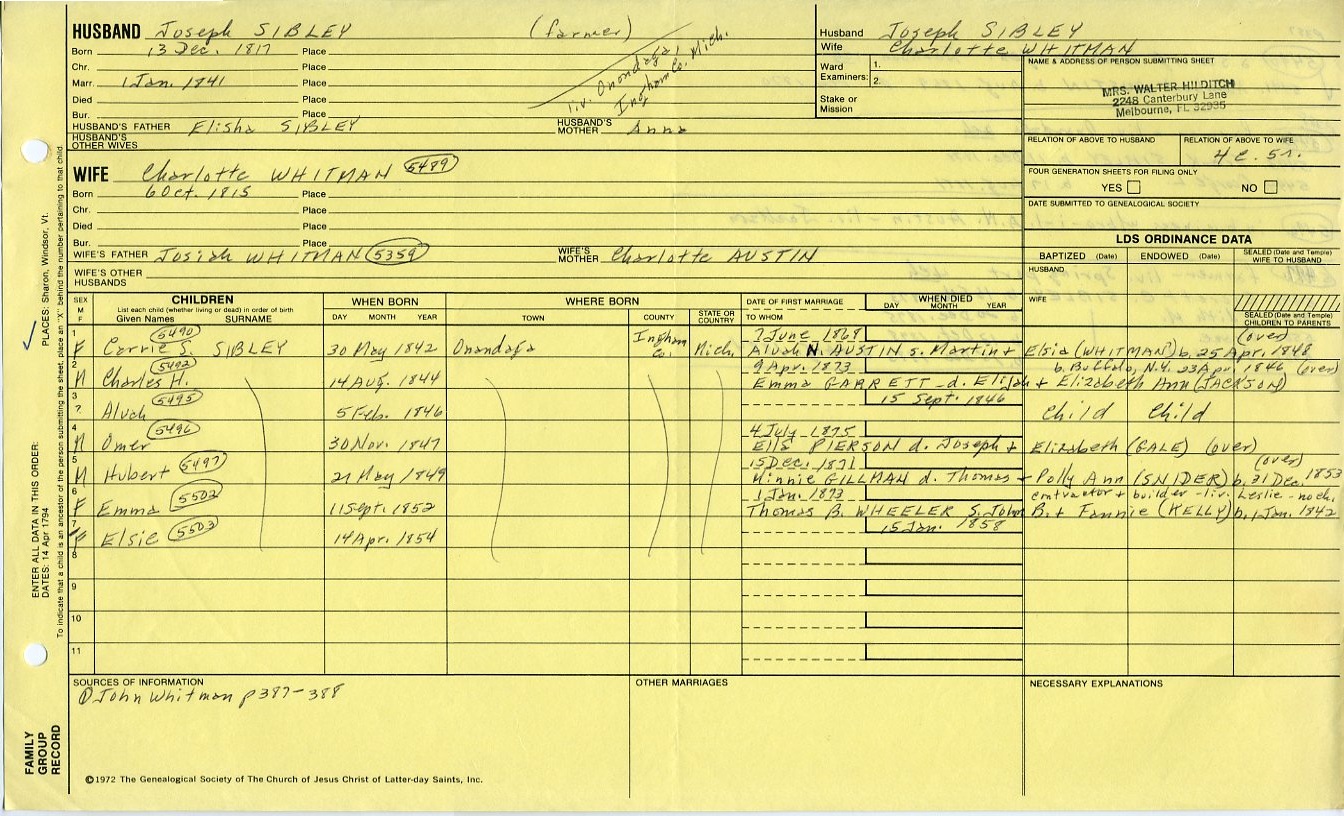 HUSBAND Joseph SIBLEY (farmer)
Born 13 Dec. 1817 Place
Chr. Place
Marr. 1 Jan. 1841 Place
Died Place
Bur. Place
liv. Onondaga, Ingham Co. Mich.
HUSBAND'S FATHER Elisha SIBLEY HUSBAND'S MOTHER Anna
HUSBAND'S OTHER WIVES
Husband Joseph SIBLEY
Wife Charlotte WHITMAN
Ward Examiners: 1.
2.
Stake or Mission
NAME & ADDRESS OF PERSON SUBMITTING SHEET
MRS. WALTER HILDITCH
2248 Canterbury Lane
Melbourne, FL 32935
RELATION OF ABOVE TO HUSBAND RELATION OF ABOVE TO WIFE
4c. 5r.
FOUR GENERATION SHEETS FOR FILING ONLY
YES NO
DATE SUBMITTED TO GENEALOGICAL SOCIETY
WIFE Charlotte WHITMAN 5489
Born 6 Oct. 1815 Place
Chr. Place
Died Place
Bur. Place
WIFE'S FATHER Josiah WHITMAN 5359 WIFE'S MOTHER Charlotte AUSTIN
WIFE'S OTHER HUSBANDS
LDS ORDINANCE DATA
BAPTIZED (Date) ENDOWED (Date) SEALED (Date and Temple) WIFE TO HUSBAND
HUSBAND
WIFE
SEALED (Date and Temple) CHILDREN TO PARENTS
SEX M F
CHILDREN
List each child (whether living or dead) in order of birth
Given Names SURNAME
WHEN BORN
DAY MONTH YEAR
WHERE BORN
TOWN COUNTY STATE OR COUNTRY
DATE OF FIRST MARRIAGE
TO WHOM
WHEN DIED
DAY MONTH YEAR
1 F Carrie S. SIBLEY 5490 30 May 1842 Onondaga Ingham Co. Mich. 7 June 1868 Alvah N. AUSTIN s. Martin + Elsia (WHITMAN) b. 25 Apr. 1848 (over)
2 M Charles H. 5492 14 Aug. 1844 9 Apr. 1873 Emma GARRETT d. Elijah + Elizabeth Ann (JACKSON) b. Buffalo, N.Y. 23 Apr. 1846 (over)
3 ? Alvah 5495 5 Feb. 1846 15 Sept. 1846 Child Child
4 M Omer 5496 30 Nov. 1847 4 July 1875 Ella PIERSON d. Joseph + Elizabeth (GALE) (over)
5 M Hubert 5497 21 May 1849 15 Dec. 1871 Minnie GILLMAN d. Thomas + Polly Ann (SNIDER) b. 31 Dec. 1853 (over)
6 F Emma 5502 11 Sept. 1852 1 Jan. 1873 Thomas B. WHEELER s. John B. + Fannie (KELLY) b. 1 Jan. 1842
contractor + builder - liv. Leslie - no ch.
7 F Elsie 5503 14 Apr. 1854 15 Jan. 1858
8
9
10
11
SOURCES OF INFORMATION
① John Whitman p 387-388
OTHER MARRIAGES
NECESSARY EXPLANATIONS
©1972 The Genealogical Society of The Church of Jesus Christ of Latter-day Saints, Inc.
FAMILY GROUP RECORD
ENTER ALL DATA IN THIS ORDER:
DATES: 14 Apr 1794
PLACES: Sharon, Windsor, Vt.
To indicate that a child is an ancestor of the person submitting the sheet, place an "X" behind the number pertaining to that child.